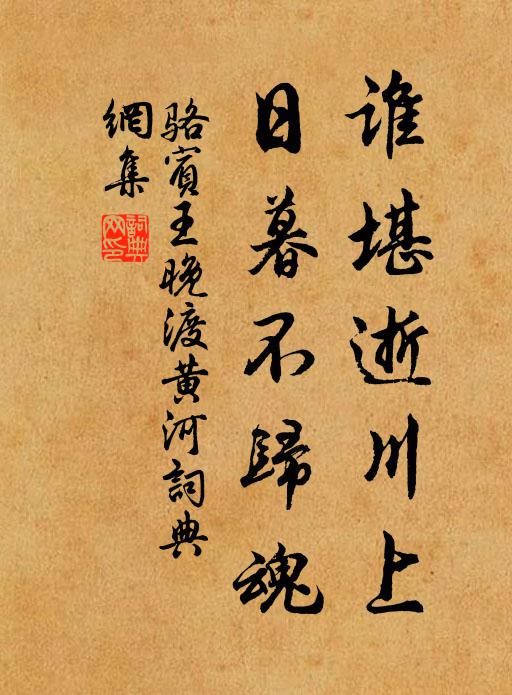 誰堪逝川上
日暮不歸魂
駱賓王晚渡黃河詞典
網集
詞典網印